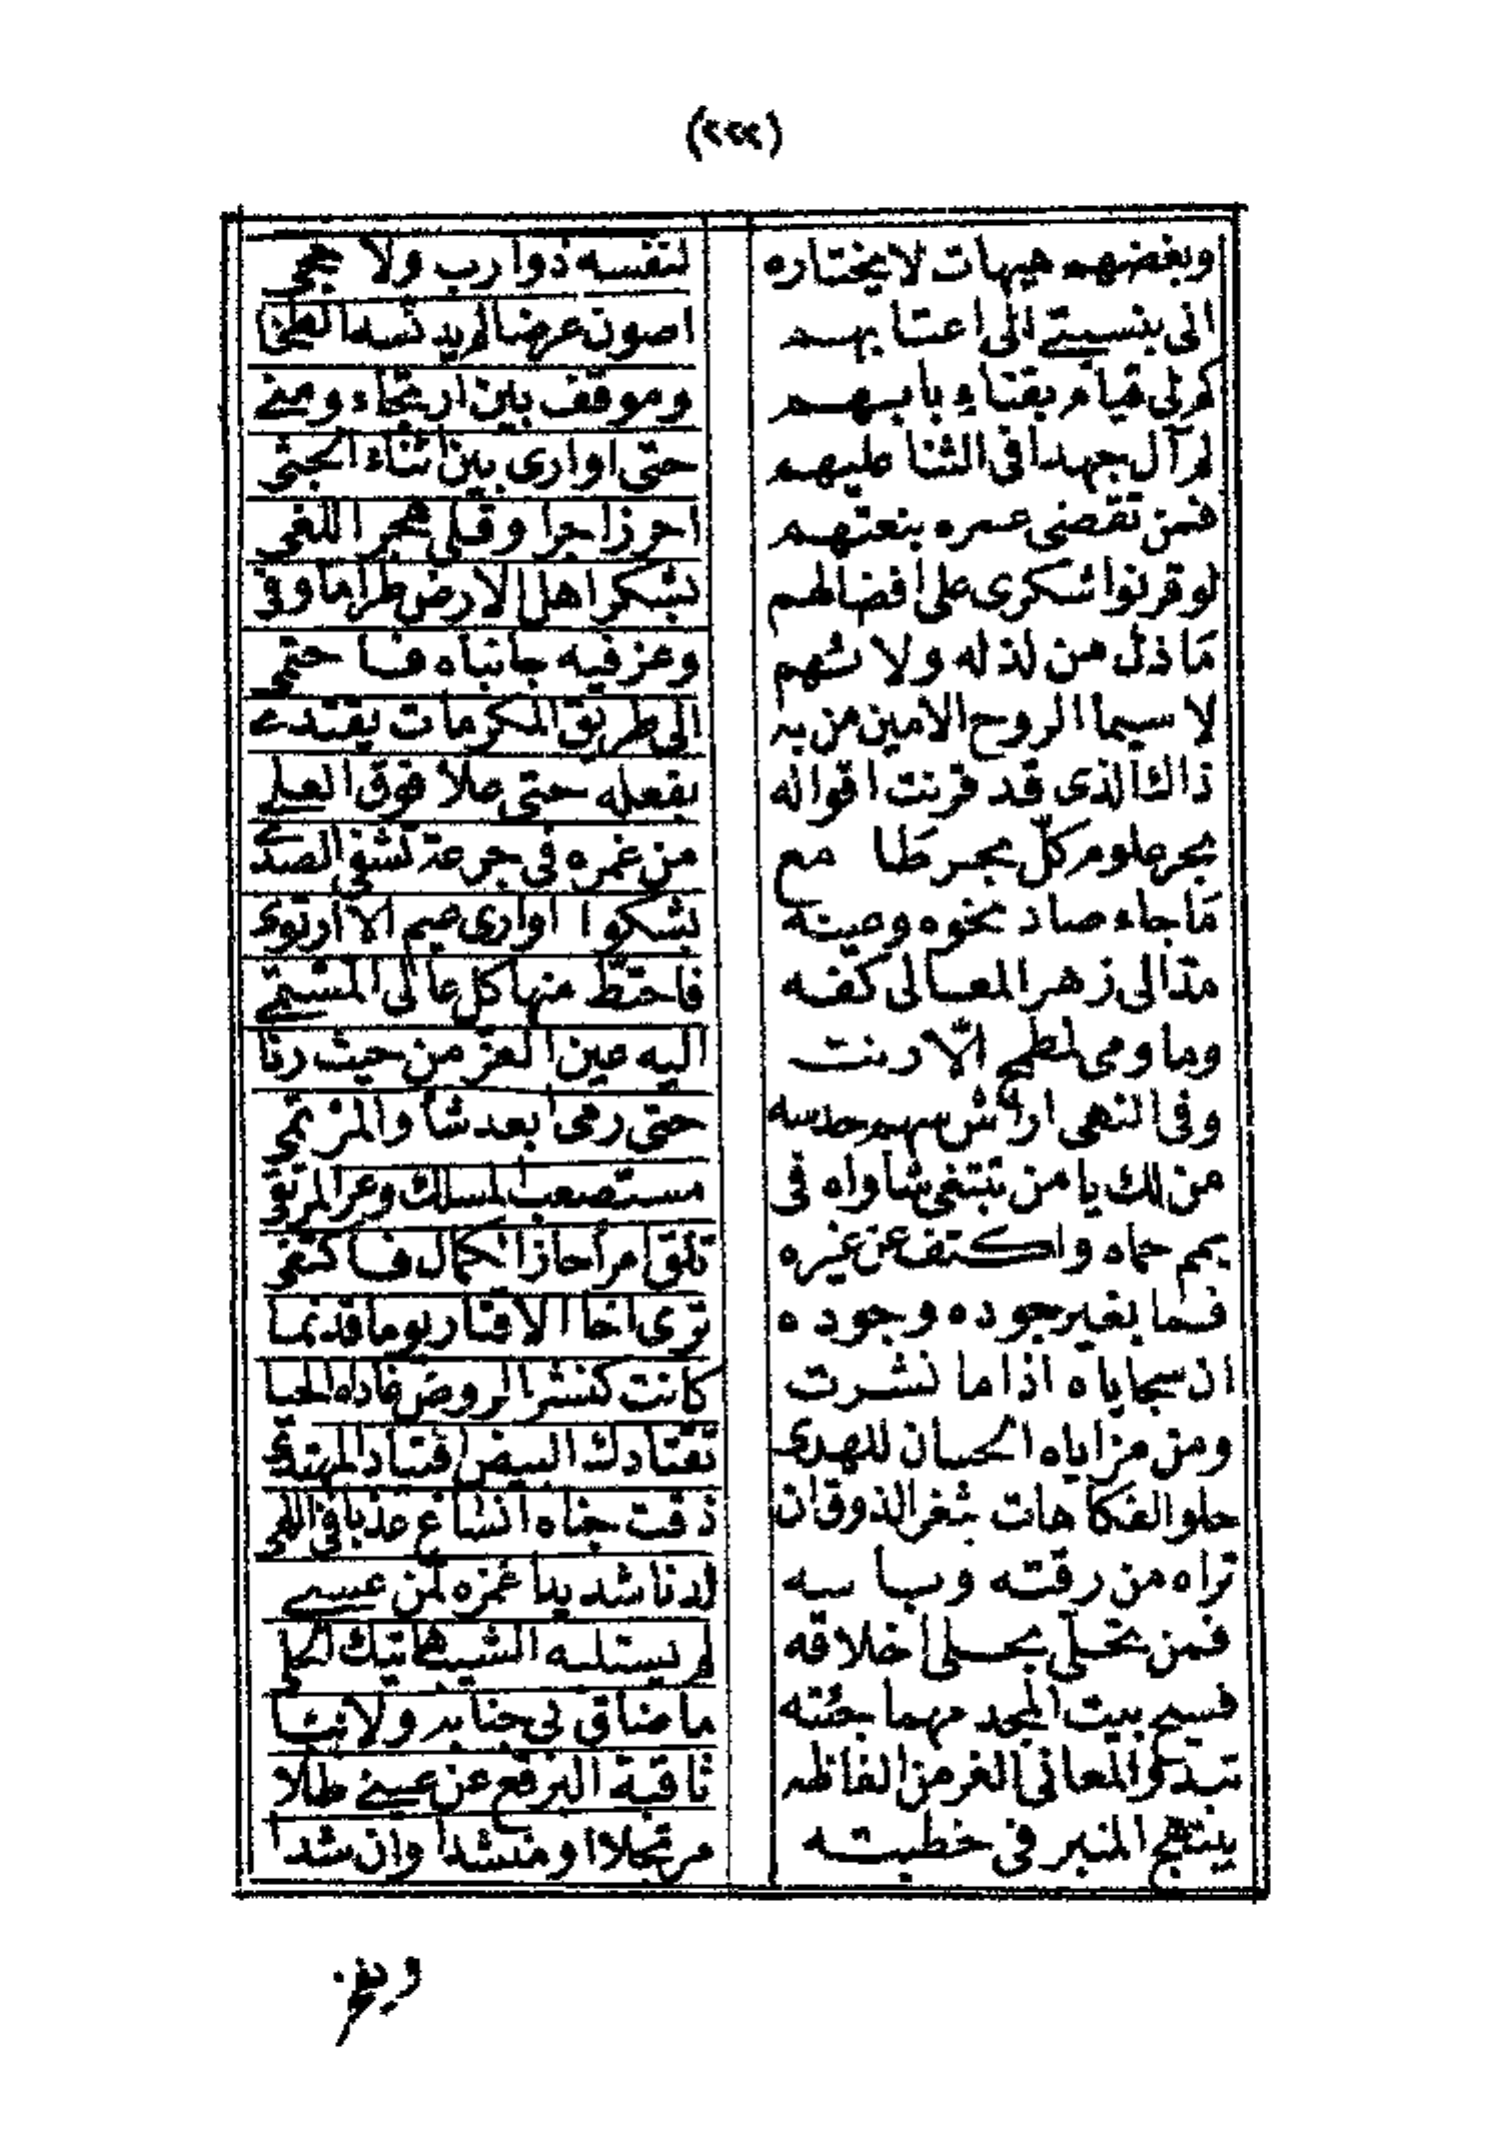 (٢٢٢)
وبغضهم هيهات لا يختاره لنفسه ذوارب ولا حجى
انى بنسبتي الى اعتابهم اصون عرضا لم يدنسه الخطا
كم لى قيام بفناء بابهم وموقف بين ارتجاء ومنى
لم آل جهدا فى الثنا عليهم حتى اوارى بين اثناء الجثى
فمن تقضى عمره بنعتهم احرز اجرا وقلى هجر اللغى
لو قرنوا شكرى على افضالهم بشكر اهل الارض طرا ما وفى
مَا ذلّ من لذ له ولا شهم وعز فيه جانباه فا حتمى
لا سيما الروح الامين من به الى طريق المكرمات يقتدى
ذاك الذى قد قرنت اقواله بفعله حتى علا فوق العلى
بحر علوم كلّ بحر طَا مع من غمره فى جرعة تشفى الصدى
مَا جاء صاد نحوه وصيته يشكوا اوارى صيم الا ارتوى
مدّ الى زهر المعالى كفه فاختطّ منها كل عالى المسمى
وما ومى لمطمح الّا رنت اليه عين العز من حيث رنا
وفى النهى اراش سهم حدسه حتى رمى ابعد شأ والمرتمى
من لك يا من تبتغى شاواه فى مستصعب المسلك وعر المرتقى
يمم حماه واكتف عن غيره تلق امرأ حاز الكمال فاكتفى
فما بغير جوده وجوده ترى اخا الاقتار يوما قد نما
ان سجاياه اذا ما نشرت كانت كنشر الروض غاداه الحيا
ومن مزاياه الحسان للهدى تقتادك البيض اقتياد المهتدى
حلو الفكاهات بثغر الذوق ان ذقت جناه انساغ عذبا فى اللهى
تراه من رقته وبأسه لدنا شديدا غمزه لمن عسى
فمن تحلّى بحلى اخلاقه لم يستلبه الشيب هاتيك الحلى
فسيح بيت المجد مهما جئته ما ضاق بى جنابه ولا نبا
تبدو المعانى الغر من الفاظه ثاقبة البرقع عن عينى طلا
ينتهج المنبر فى خطبته مرتجلا او منشدا وان شدا